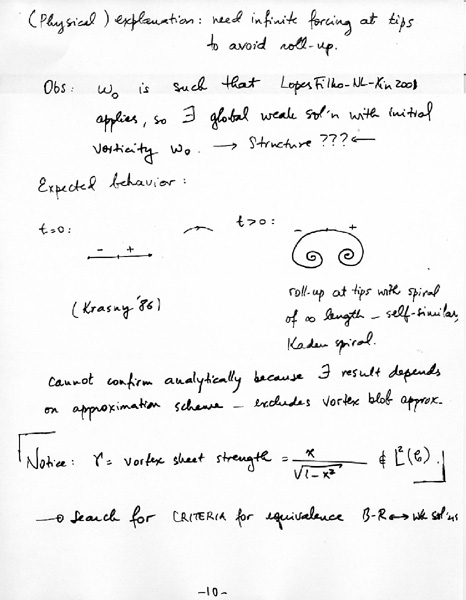 (Physical) explanation: need infinite forcing at tips
to avoid roll-up.
Obs: ω₀ is such that Lopes Filho-NL-Xin 2001
applies, so ∃ global weak sol'n with initial
vorticity ω₀. → Structure ??? ←
Expected behavior:
t=0: t>0:
- + - +
(Krasny '86)
roll-up at tips with spiral
of ∞ length – self-similar,
Kaden spiral.
Cannot confirm analytically because ∃ result depends
on approximation scheme – excludes vortex blob approx.
Notice: γ = vortex sheet strength = x/√(1-x²) ∉ L²(𝒞).
→ Search for CRITERIA for equivalence B-R ↔ wk sol'ns
-10-